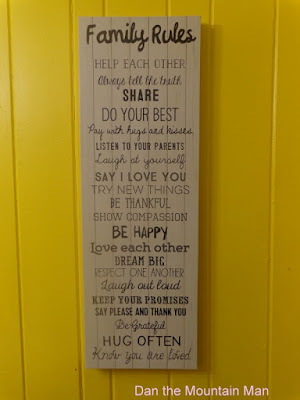 Family Rules
HELP EACH OTHER
Always tell the truth
SHARE
DO YOUR BEST
Pay with hugs and kisses
LISTEN TO YOUR PARENTS
Laugh at yourself
SAY I LOVE YOU
TRY NEW THINGS
BE THANKFUL
SHOW COMPASSION
BE HAPPY
Love each other
DREAM BIG
RESPECT ONE ANOTHER
Laugh out loud
KEEP YOUR PROMISES
SAY PLEASE AND THANK YOU
Be Grateful
HUG OFTEN
Know you are loved
Dan the Mountain Man